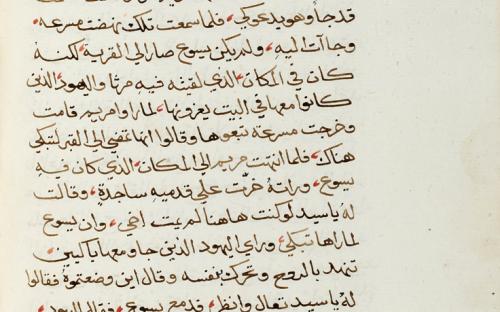 قد جا وهو يدعوكي فلما سمعت تلك نهضت مسرعه
وجاآت اليه ولم يكن يسوع صار الي القرية لكنه
كان في المكان الذي لقيته فيه مرثا واليهود الذين
كانوا معها في البيت يعزونها لما راوا مريم قامت
وخرجت مسرعة تبعوها وقالوا انها تمضي الي القبر لتبكي
هناك فلما انتهت مريم الي المكان الذي كان فيه
يسوع وراته خرّت علي قدميه ساجدة وقالت
له يا سيد لو كنت هاهنا لم يمت اخي وان يسوع
لما راها تبكي وراي اليهود الذين جاو معها باكيين
تنهد بالروح وتحرك بنفسه وقال اين وضعتموه فقالوا
له يا سيد تعال وانظر فدمع يسوع فقال اليهود